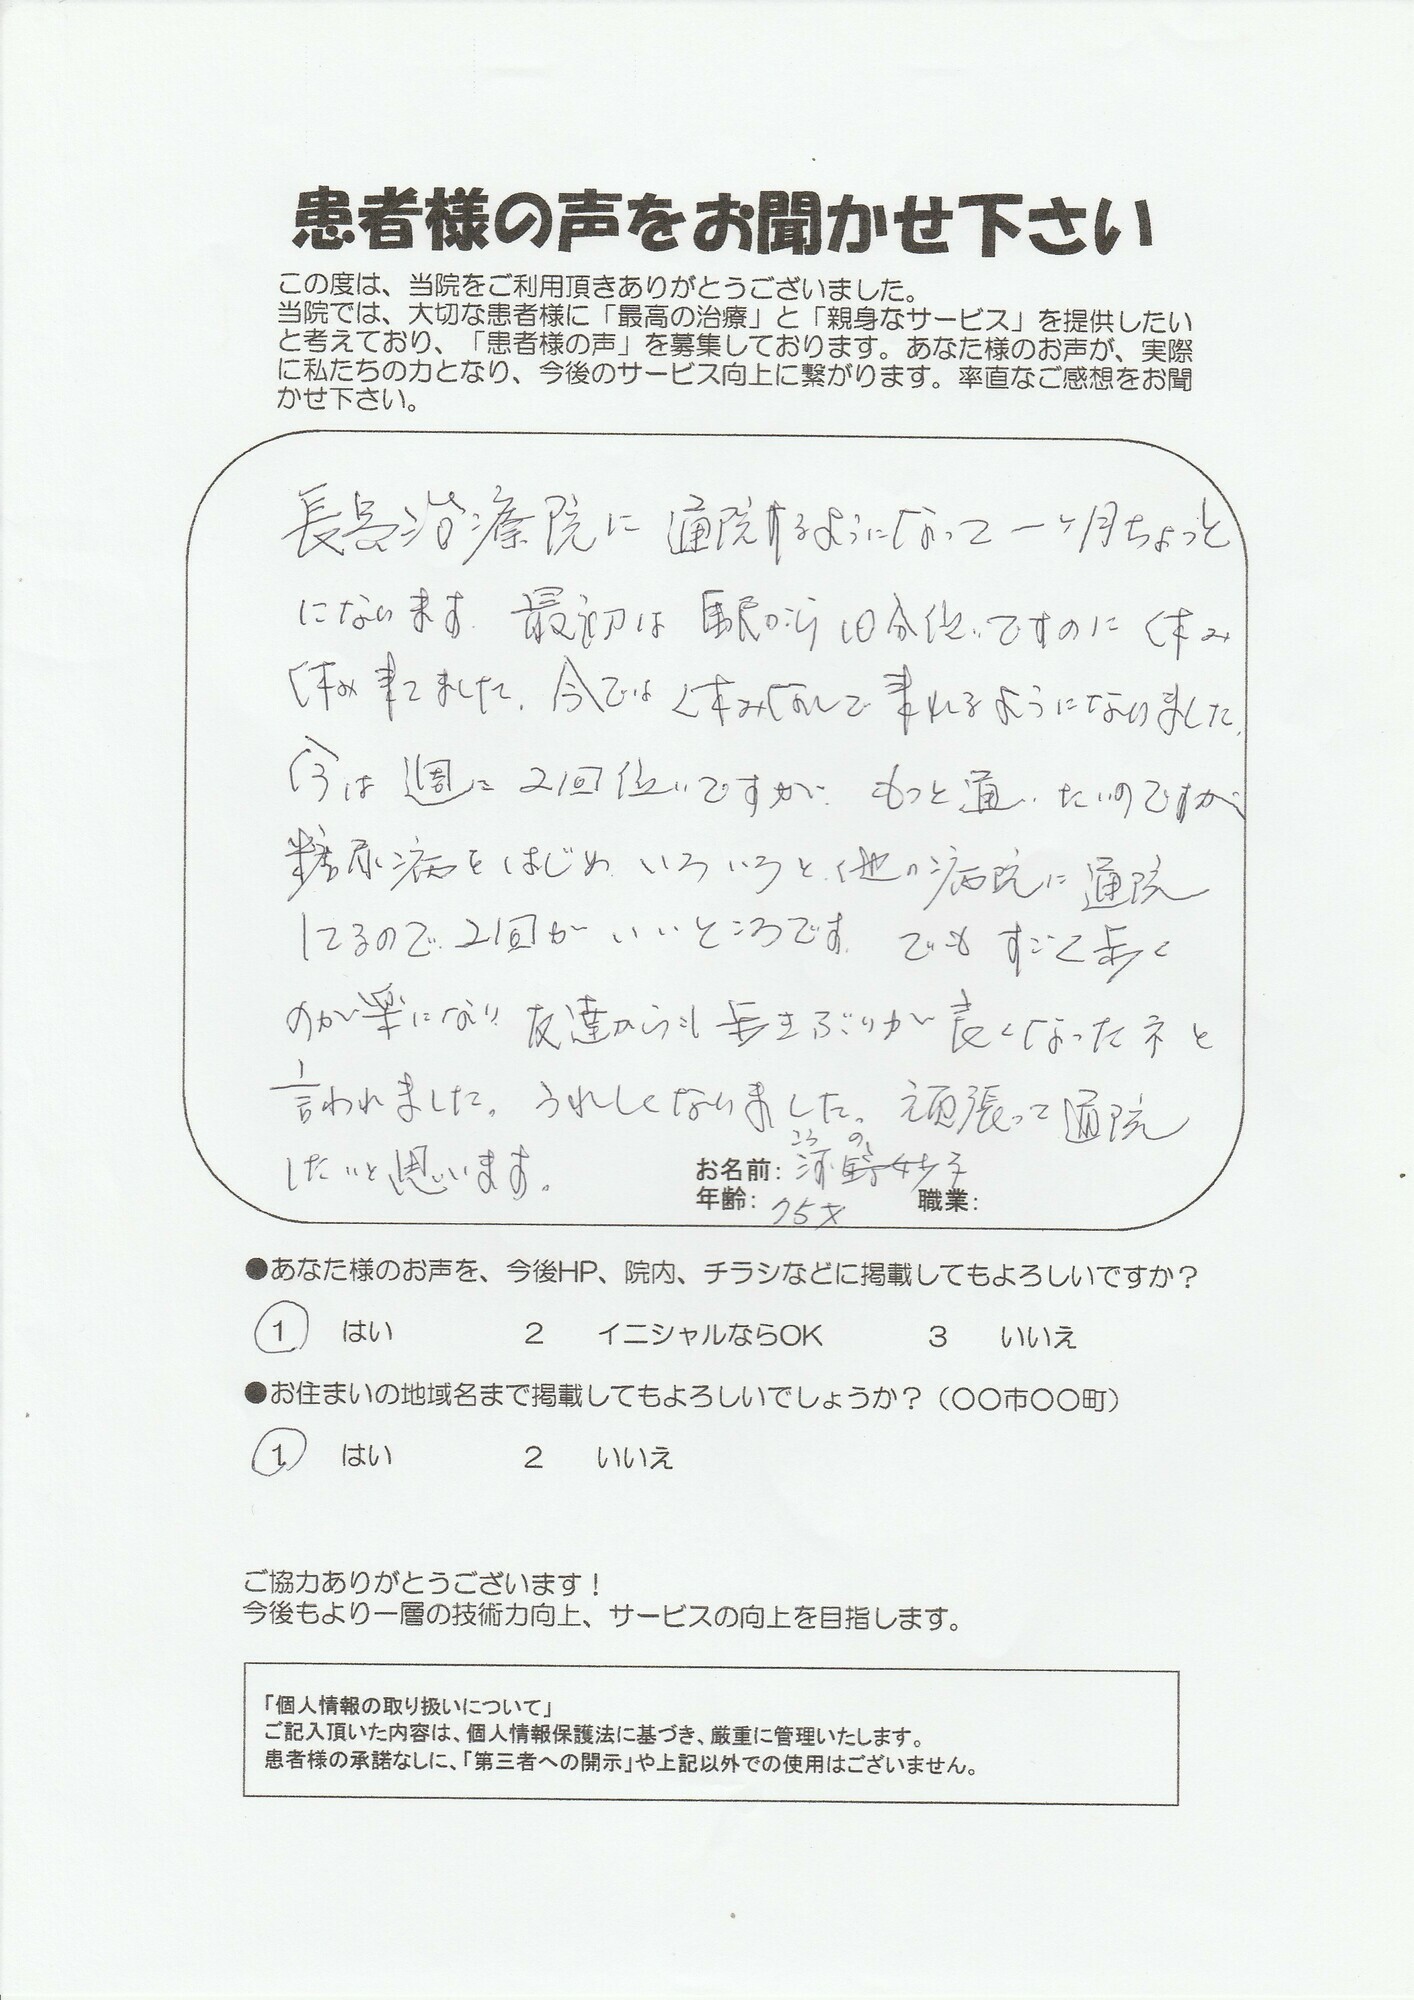 患者様の声をお聞かせ下さい
この度は、当院をご利用頂きありがとうございました。
当院では、大切な患者様に「最高の治療」と「親身なサービス」を提供したい
と考えており、「患者様の声」を募集しております。あなた様のお声が、実際
に私たちの力となり、今後のサービス向上に繋がります。率直なご感想をお聞
かせ下さい。
長島治療院に通院するようになって一ヶ月ちょっと
になります。最初は駅から10分位いですのに休み
休み来てました。今では休みなしで来れるようになりました。
今は週に2回位いですが、もっと通いたいのですが
糖尿病をはじめいろいろと他の病院に通院
してるので、2回がいいところです。でもすごく歩く
のが楽になり友達からも歩きぶりが良くなったネと
言われました。うれしくなりました。頑張って通院
したいと思います。
こうの
お名前: 河野妙子
年齢: 75才 職業:
●あなた様のお声を、今後HP、院内、チラシなどに掲載してもよろしいですか？
1 はい 2 イニシャルならOK 3 いいえ
●お住まいの地域名まで掲載してもよろしいでしょうか？（〇〇市〇〇町）
1 はい 2 いいえ
ご協力ありがとうございます！
今後もより一層の技術力向上、サービスの向上を目指します。
「個人情報の取り扱いについて」
ご記入頂いた内容は、個人情報保護法に基づき、厳重に管理いたします。
患者様の承諾なしに、「第三者への開示」や上記以外での使用はございません。